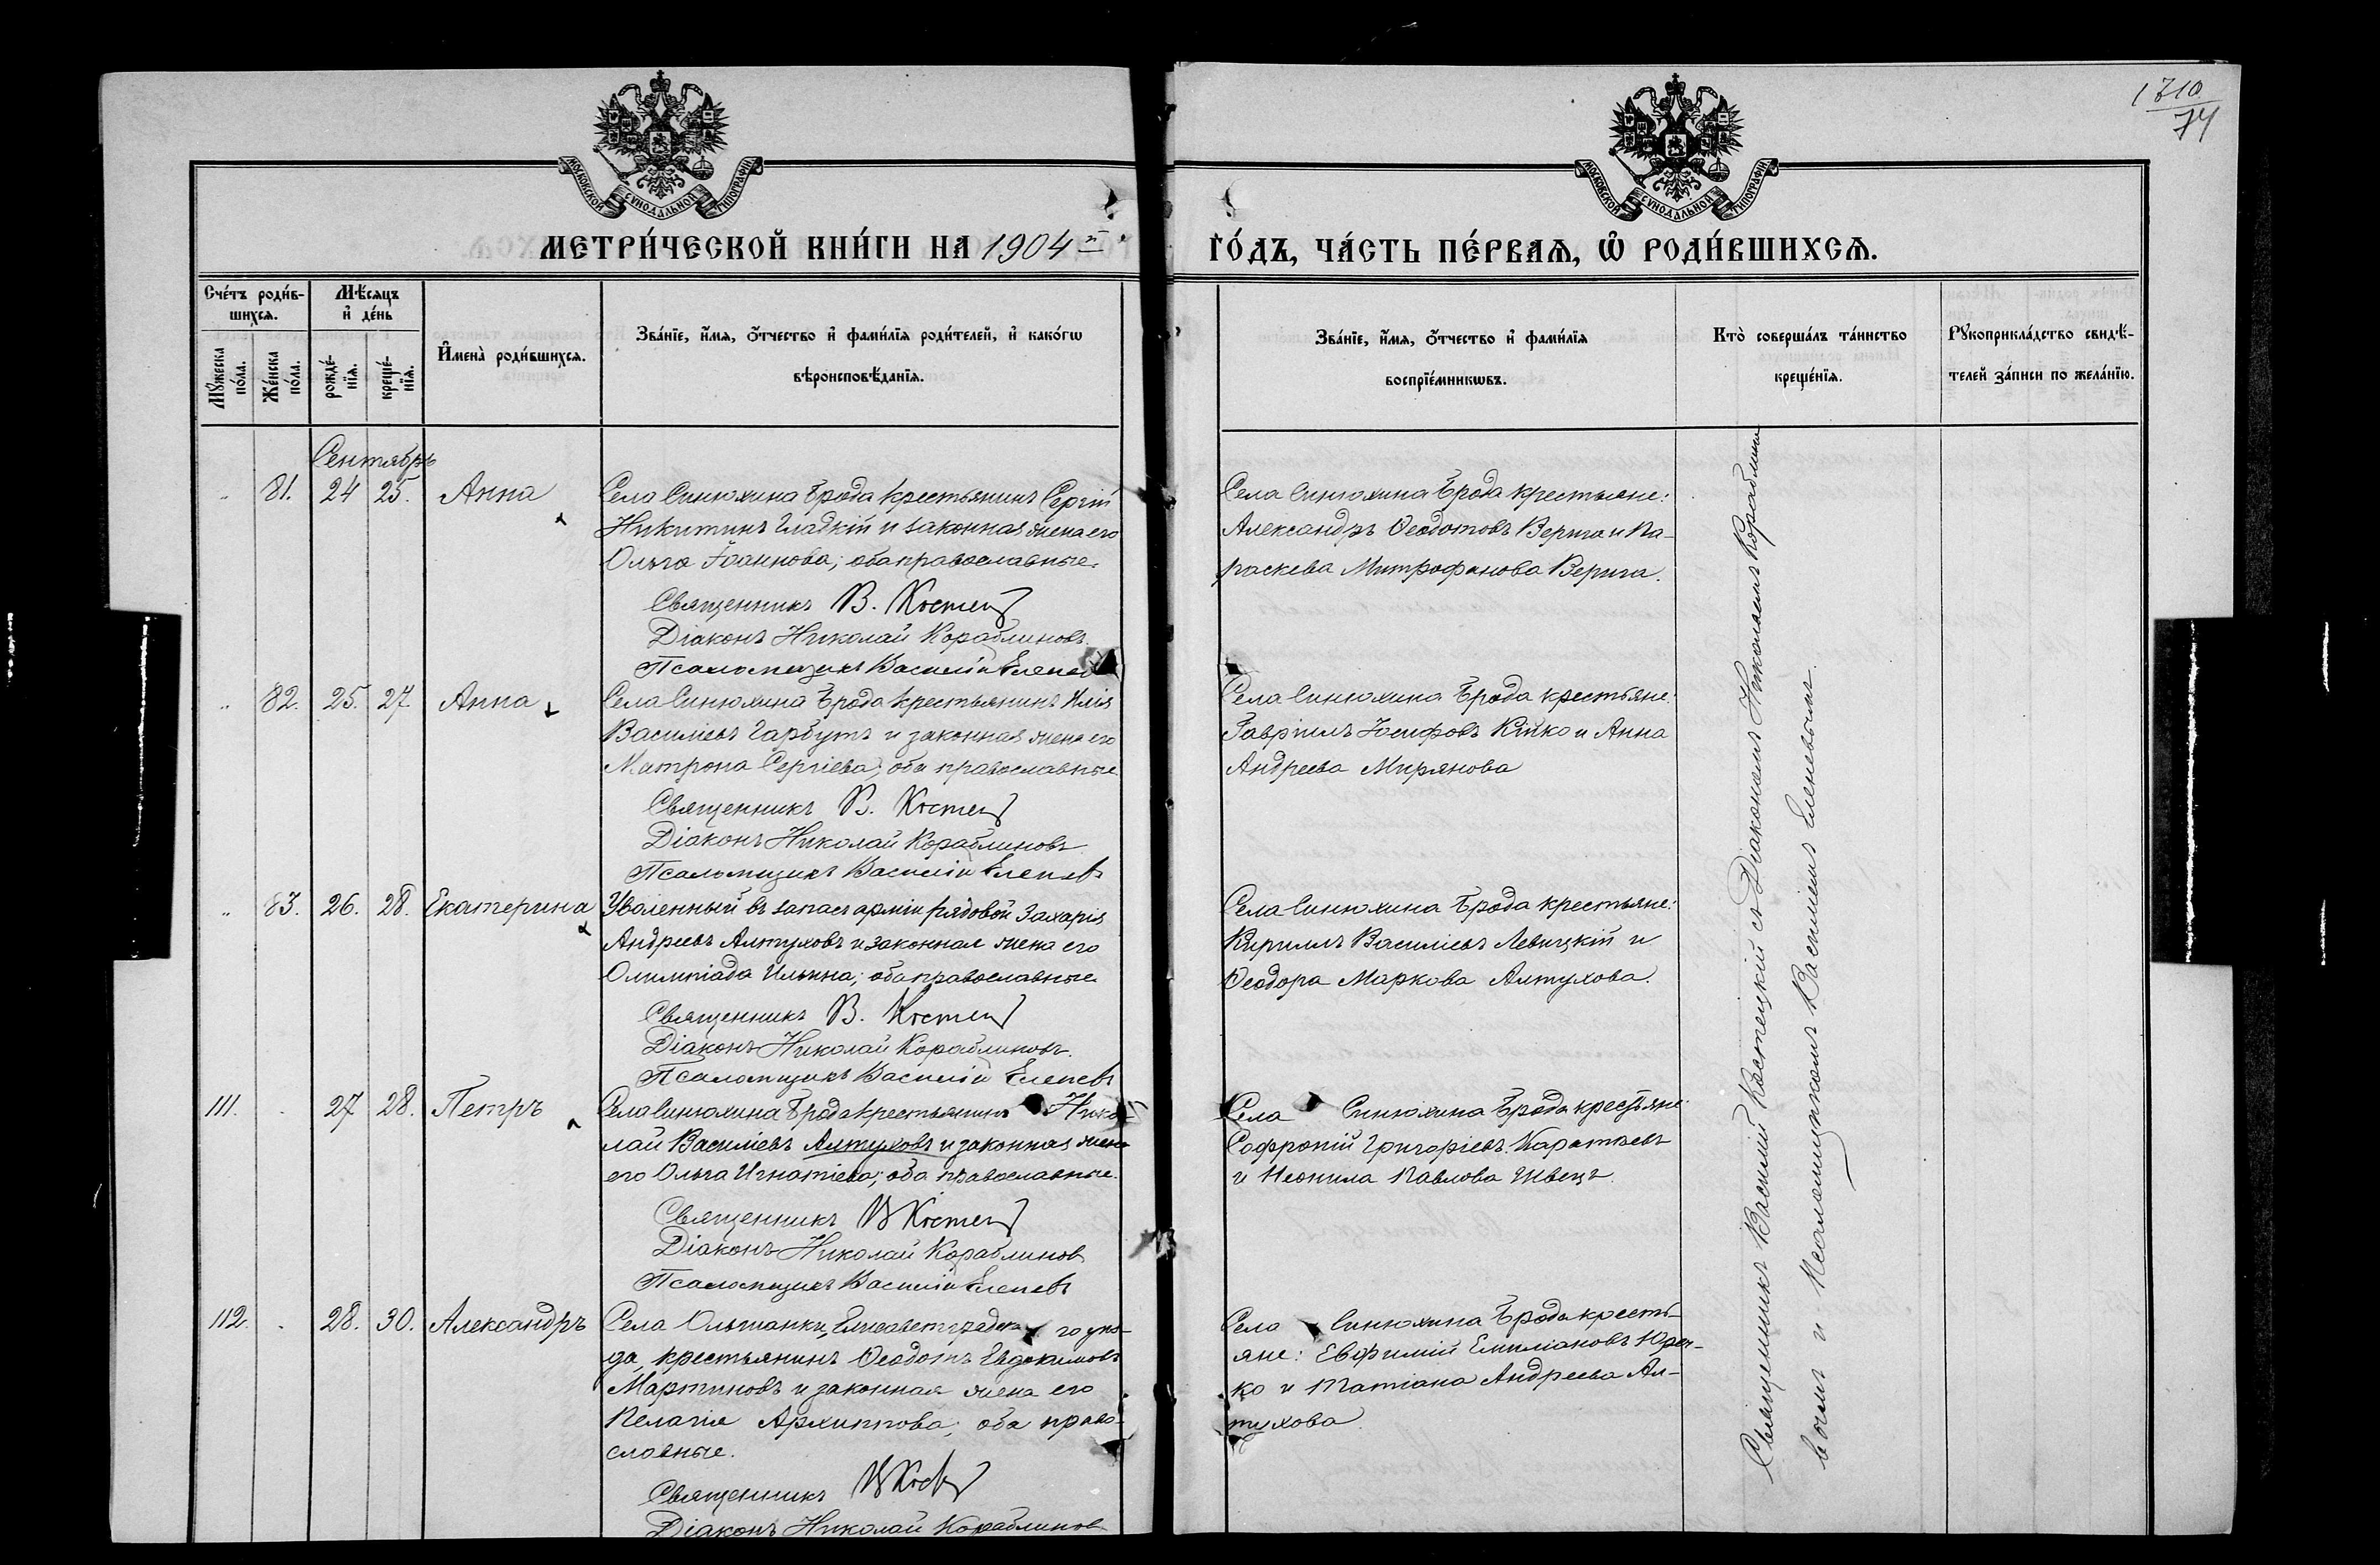 1310
74
МОСКОВСКОЙ СѴНОДАЛЬНОЙ ТИПОГРАФІИ
МОСКОВСКОЙ СѴНОДАЛЬНОЙ ТИПОГРАФІИ
МЕТРИ́ЧЕСКОЙ КНИ́ГИ НА 1904й
ГО́ДЪ, ЧА́СТЬ ПЕ́РВАѦ, Ѡ҆ РОДИ́ВШИХСѦ.
Сче́тъ роди́в-
шихсѧ.
Мꙋ́жеска
по́ла.
Же́нска
по́ла.
Мѣ́сѧцъ
и҆ де́нь
рожде́-
нїѧ.
креще́-
нїѧ.
И҆мена̀ роди́вшихсѧ.
Зва́нїе, и҆́мѧ, ѻ҆́тчество и҆ фами́лїѧ роди́телей, и҆ како́гѡ
вѣроисповѣ́данїѧ.
Зва́нїе, и҆́мѧ, ѻ҆́тчество и҆ фами́лїѧ
воспрїе́мникѡвъ.
Кто̀ соверша́лъ та́инство
креще́нїѧ.
Рꙋкоприкла́дство свидѣ́-
телей за́писи по жела́нїю.
Сентябрь
„ 81. 24 25. Анна
Села Синюхина Брода крестьянинъ Сергій
Никитинъ Гладкій и законная жена его
Ольга Іоаннова; оба православные.
Священникъ В. Костец
Діаконъ Николай Кораблиновъ.
Псаломщикъ Василій Еленевъ
Села Синюхина Брода крестьяне:
Александръ Ѳеодотовъ Верига и Па-
раскева Митрофанова Верига.
„ 82. 25. 27 Анна
Села Синюхина Брода крестьянинъ Илія
Василіевъ Гарбутъ и законная жена его
Матрона Сергіева; оба православные
Священникъ В. Костец
Діаконъ Николай Кораблиновъ
Псаломщикъ Василій Еленевъ
Села Синюхина Брода крестьяне:
Гавріилъ Іосифовъ Кійко и Анна
Андреева Мирянова
„ 83. 26. 28. Екатерина
Уволенный въ запасъ арміи рядовой Захарія
Андреевъ Алтуховъ и законная жена его
Олимпіада Ильина; оба православные
Священникъ В. Костец
Діаконъ Николай Кораблиновъ.
Псаломщикъ Василій Еленевъ
Села Синюхина Брода крестьяне:
Кириллъ Василіевъ Левицкій и
Ѳеодора Маркова Алтухова.
111. „ 27 28. Петръ
Села Синюхина Брода крестьянинъ Нико-
лай Василіевъ Алтуховъ и законная жена
его Ольга Игнатіева; оба православные.
Священникъ В Костец
Діаконъ Николай Кораблинов
Псаломщикъ Василій Еленевъ
Села Синюхина Брода крестьяне
Софроній Григоріевъ Каратѣевъ
и Неонила Павлова Швецъ.
112. „ 28. 30. Александръ
Села Ольшанки, Елисаветградска го уѣз-
да, крестьянинъ Ѳеодотъ Евдокимовъ
Мартиновъ и законная жена его
Пелагія Архиппова; оба право-
славные.
Священникъ В Кост
Діаконъ Николай Кораблинов
Села Синюхина Брода кресть-
яне: Евфимій Емиліановъ Юрч-
ко и Татіана Андреева Ал-
тухова
Священникъ Василій Костецкій съ Діакономъ Николаемъ Кораблино-
вымъ и Псаломщикомъ Василіемъ Еленевымъ.